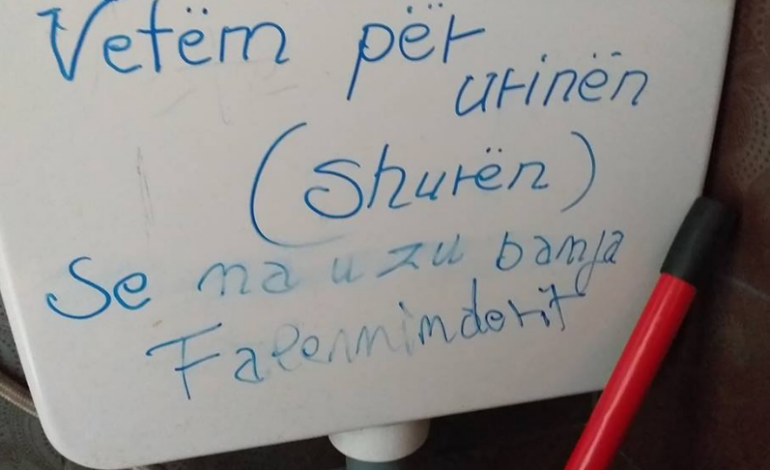 Vetëm për
urinën
(Shurën)
Se na u zu banja
Faleminderit